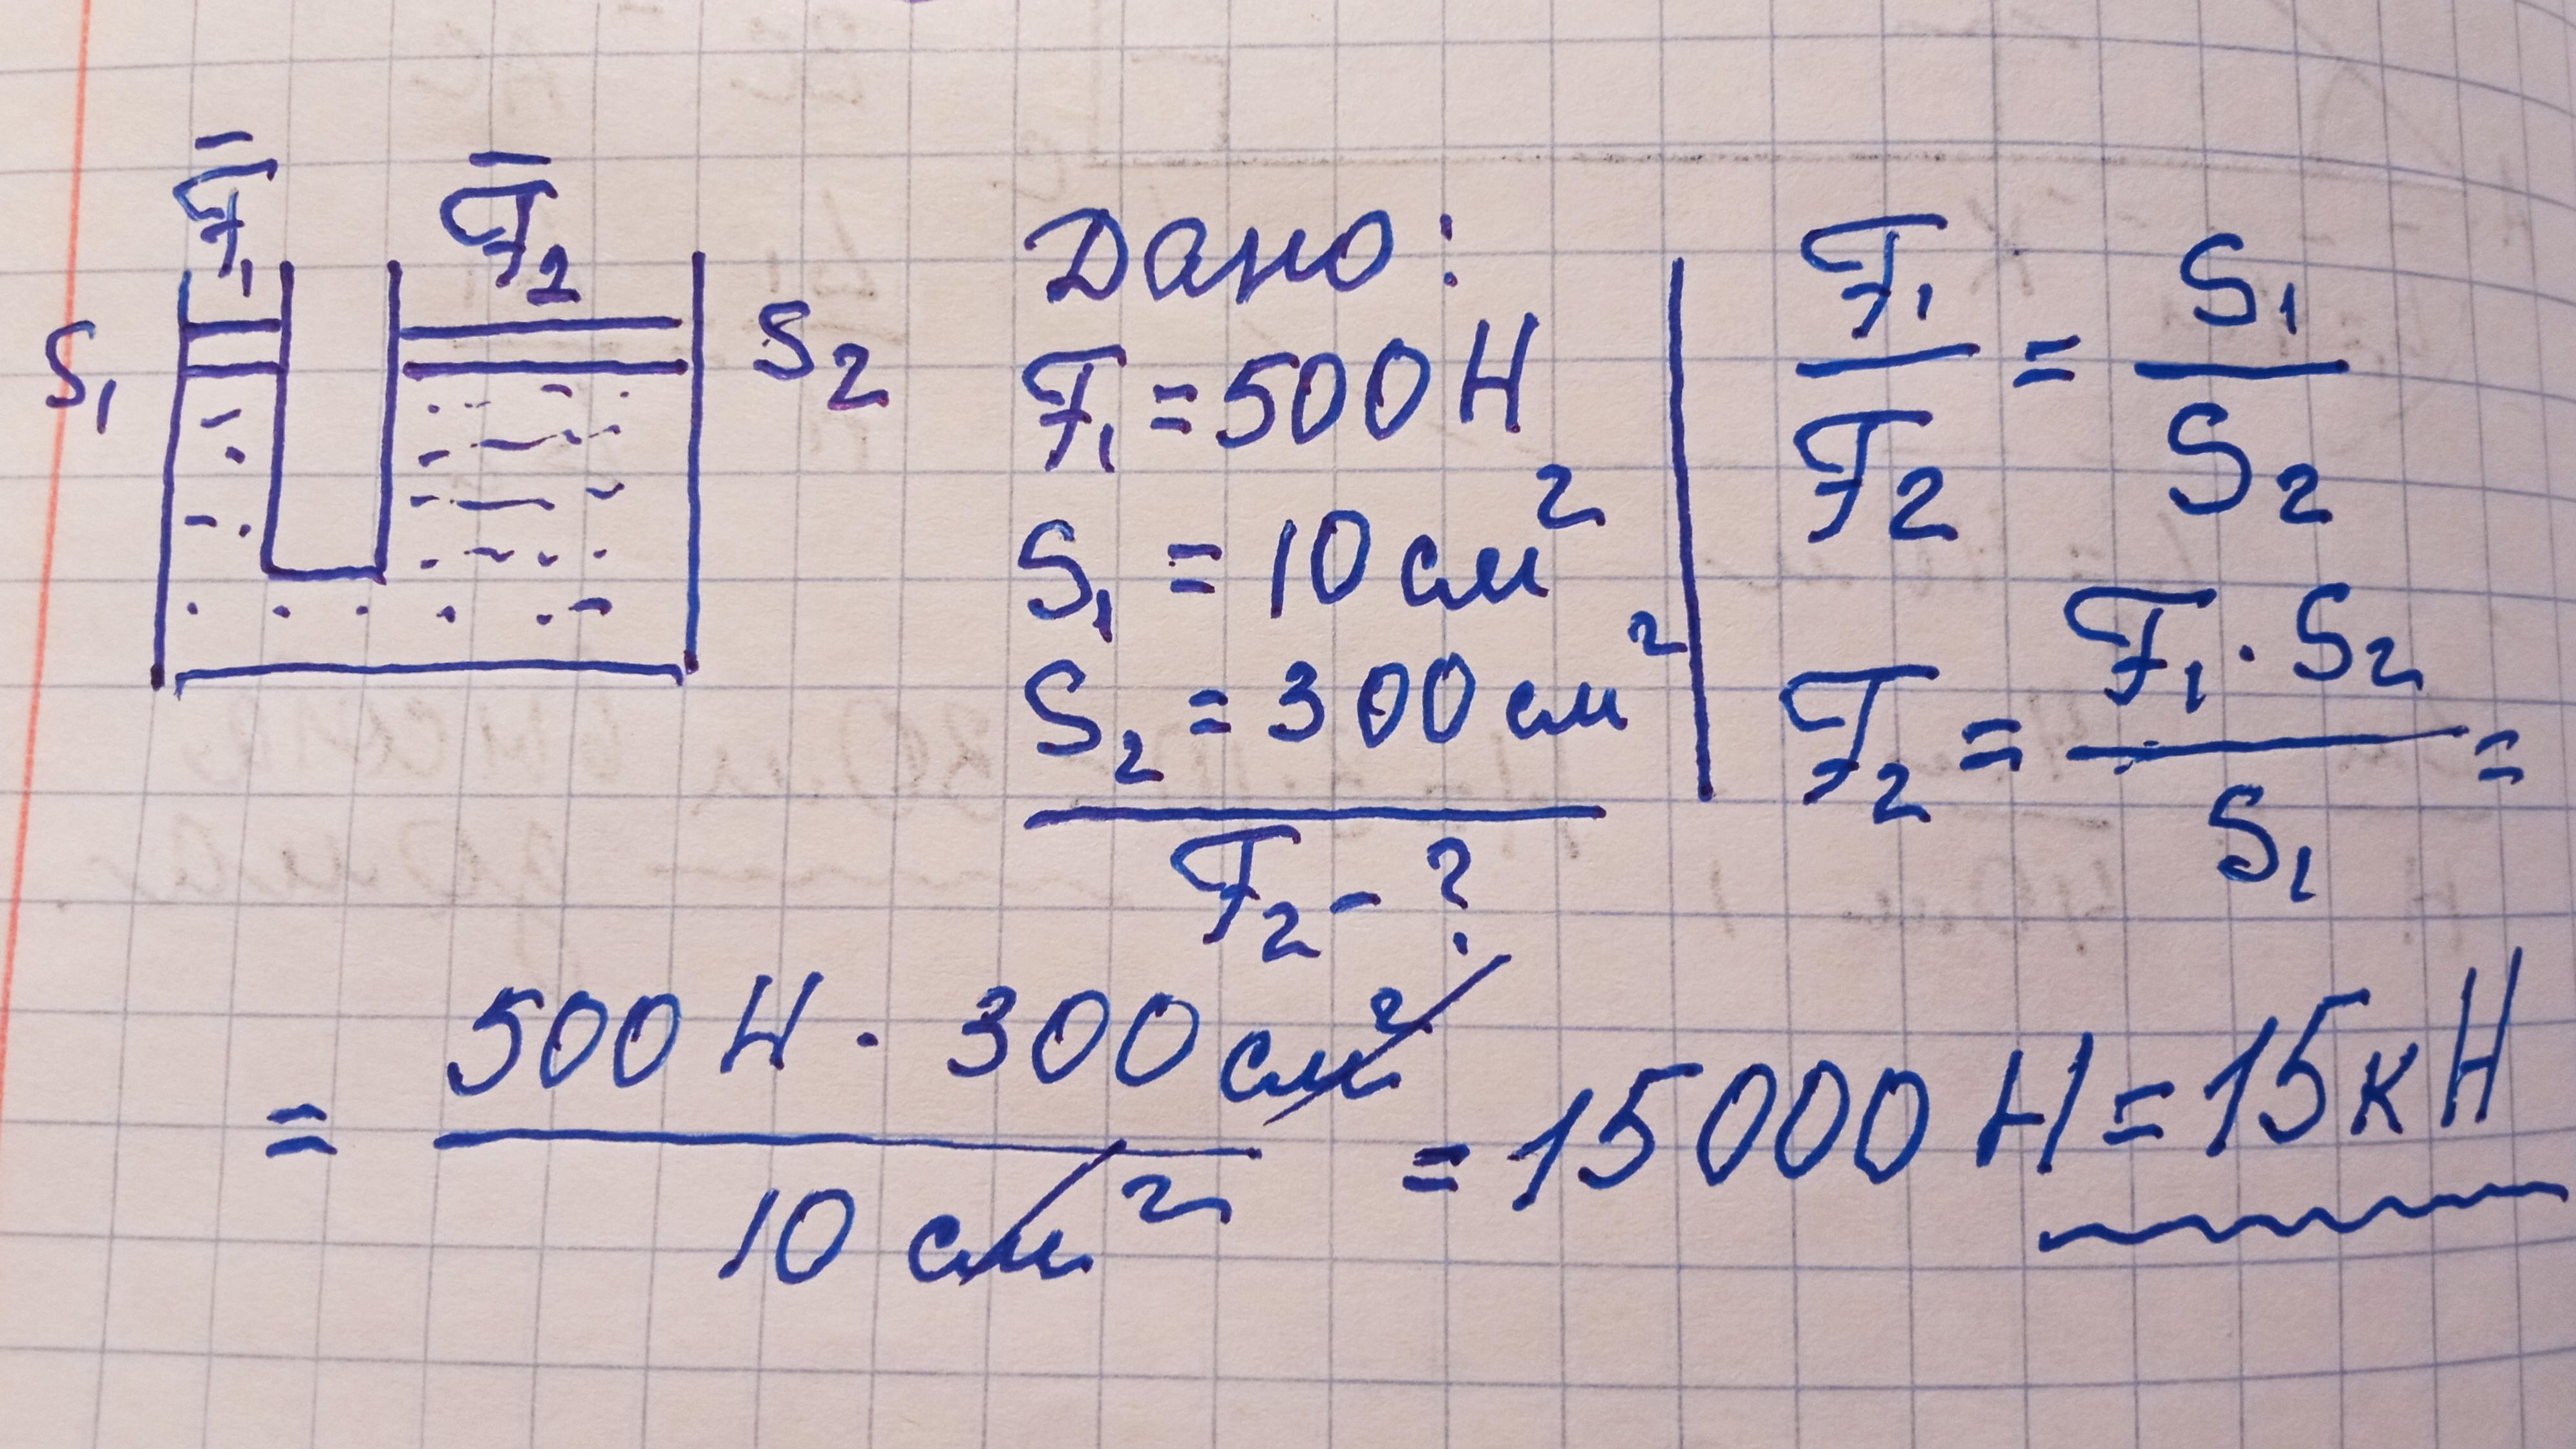 F₁ F₂
S₁ S₂
Дано:
F₁ = 500 Н
S₁ = 10 см²
S₂ = 300 см²
F₂ - ?
F₁/F₂ = S₁/S₂
F₂ = F₁ · S₂ / S₁ =
= 500 Н · 300 см² / 10 см² = 15000 Н = 15 кН